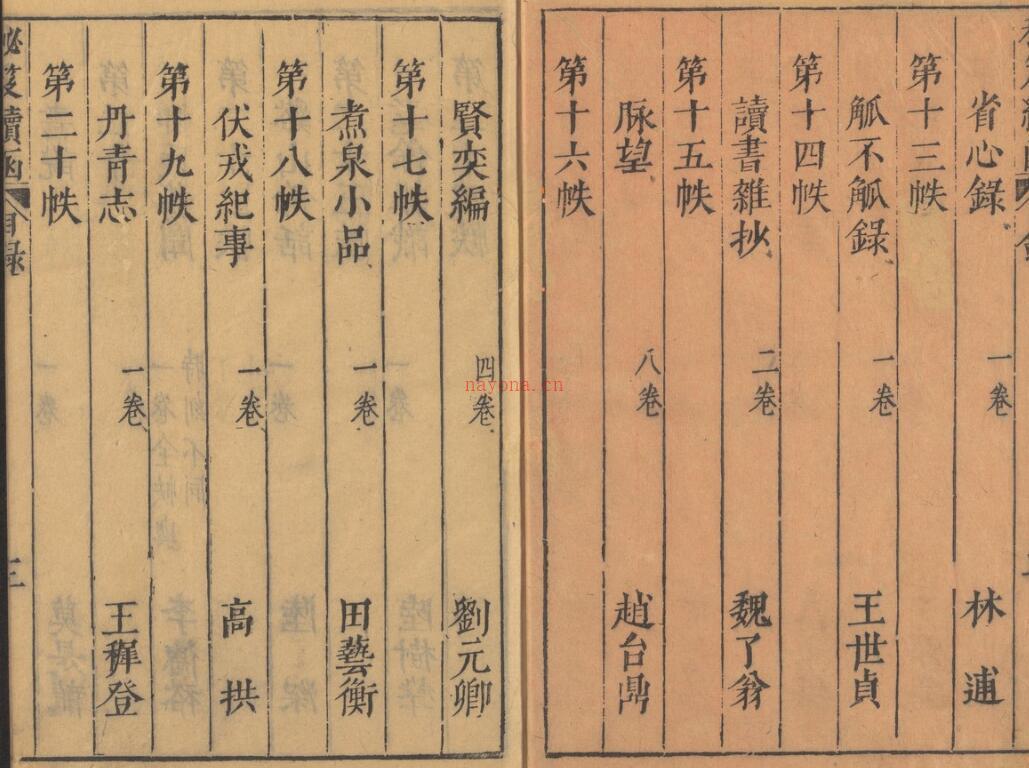 省心録 一卷 林逋
第十三帙
觚不觚録 一卷 王世貞
第十四帙
讀書雜抄 二卷 魏了翁
第十五帙
脉望 八卷 趙台鼎
第十六帙
賢奕編 四卷 劉元卿
第十七帙
煮泉小品 一卷 田藝衡
第十八帙
伏戎紀事 一卷 高拱
第十九帙
丹青志 一卷 王穉登
第二十帙
秘笈續函 目録 三
nayona.cn